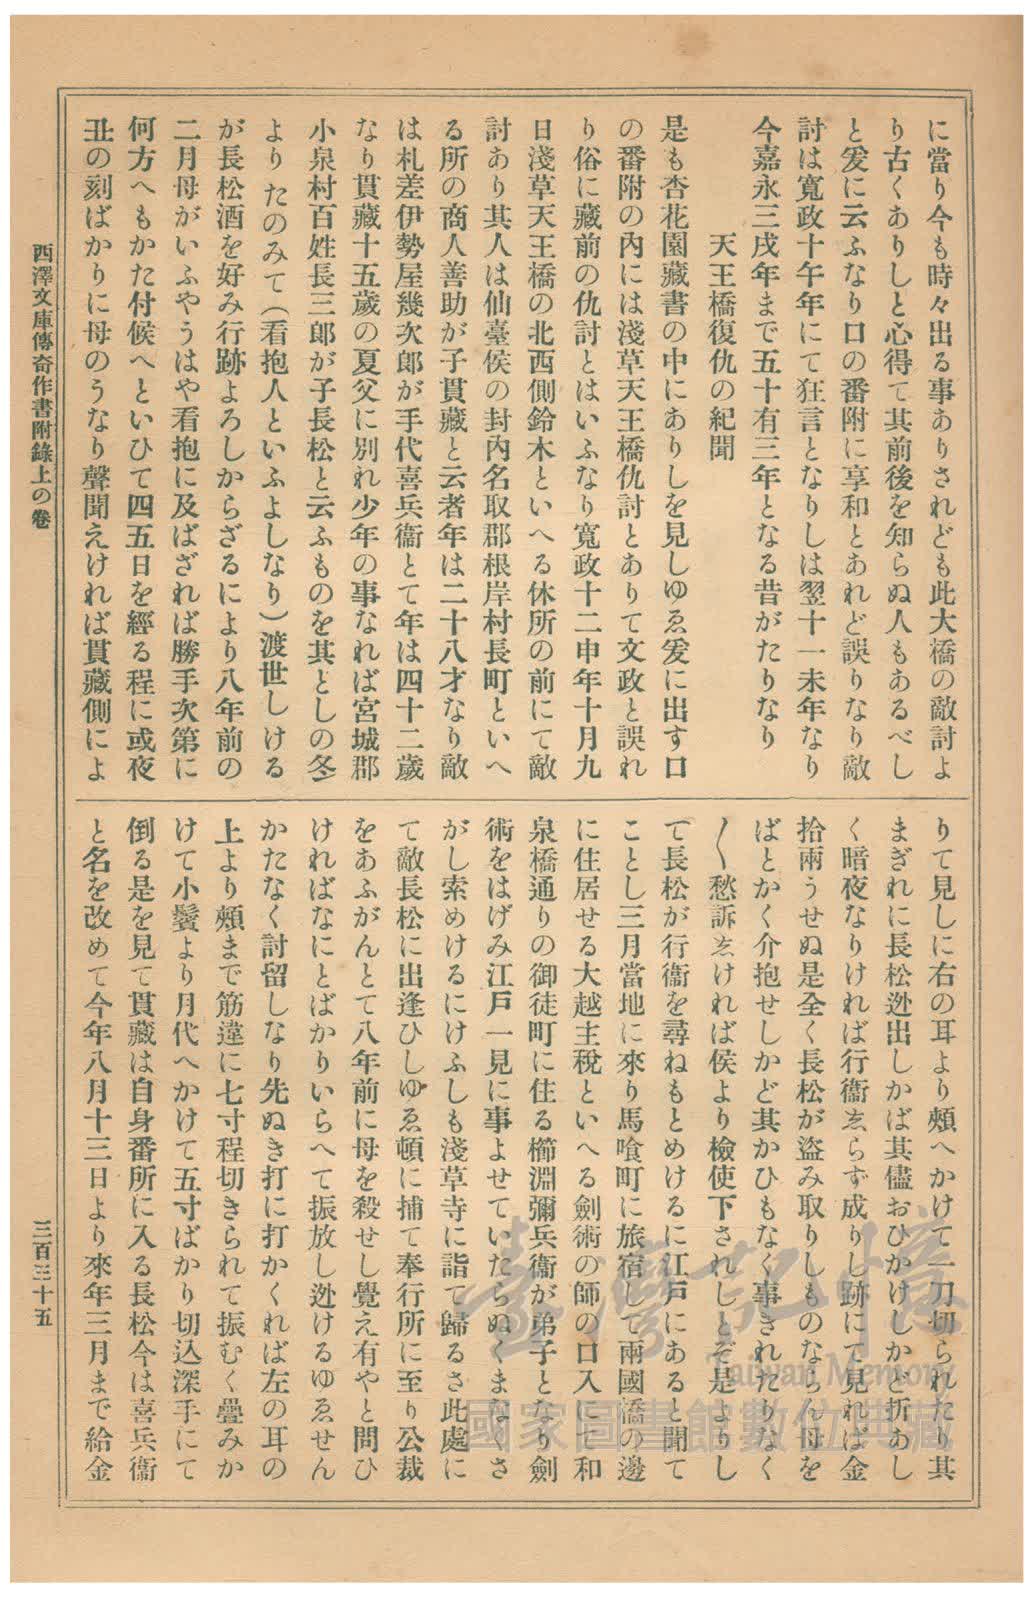 に當り今も時々出る事ありされども此大橋の敵討よ
り古くありしと心得て其前後を知らぬ人もあるべし
と爰に云ふなり口の番附に享和とあれど誤りなり敵
討は寛政十午年にて狂言となりしは翌十一未年なり
今嘉永三戌年まで五十有三年となる昔がたりなり
天王橋復仇の紀聞
是も杏花園藏書の中にありしを見しゆゑ爰に出す口
の番附の內には淺草天王橋仇討とありて文政と誤れ
り俗に藏前の仇討とはいふなり寛政十二申年十月九
日淺草天王橋の北西側鈴木といへる休所の前にて敵
討あり其人は仙臺侯の封內名取郡根岸村長町といへ
る所の商人善助が子貫藏と云者年は二十八才なり敵
は札差伊勢屋幾次郎が手代喜兵衞とて年は四十二歲
なり貫藏十五歲の夏父に別れ少年の事なれば宮城郡
小泉村百姓長三郎が子長松と云ふものを其としの冬
よりたのみて(看抱人といふよしなり)渡世しける
が長松酒を好み行跡よろしからざるにより八年前の
二月母がいふやうはや看抱に及ばざれば勝手次第に
何方へもかた付候へといひて四五日を經る程に或夜
丑の刻ばかりに母のうなり聲聞えければ貫藏側によ
りて見しに右の耳より頰へかけて一刀切られたり其
まぎれに長松迯出しかば其儘おひかけしかど折あし
く暗夜なりければ行衞ゑらず成りし跡にて見れば金
拾兩うせぬ是全く長松が盜み取りしものならん母を
ばとかく介抱せしかど其かひもなく事きれたりなく
〱愁訴ゑければ侯より檢使下されしとぞ是よりし
て長松が行衞を尋ねもとめけるに江戶にあると聞て
ことし三月當地に來り馬喰町に旅宿して兩國橋の邊
に住居せる大越主稅といへる劍術の師の口入にて和
泉橋通りの御徒町に住る櫛淵彌兵衞が弟子となり劍
術をはげみ江戶一見に事よせていたらぬくまなくさ
がし索めけるにけふしも淺草寺に詣て歸るさ此處に
て敵長松に出逢ひしゆゑ頓に捕て奉行所に至り公裁
をあふがんとて八年前に母を殺せし覺え有やと問ひ
ければなにとばかりいらへて振放し迯けるゆゑせん
かたなく討留しなり先ぬき打に打かくれば左の耳の
上より頰まで筋違に七寸程切きられて振むく疊みか
けて小鬢より月代へかけて五寸ばかり切込深手にて
倒る是を見て貫藏は自身番所に入る長松今は喜兵衞
と名を改めて今年八月十三日より來年三月まで給金
西澤文庫傳奇作書附錄上の卷
三百三十五
臺灣記憶
Taiwan Memory
國家圖書館數位典藏